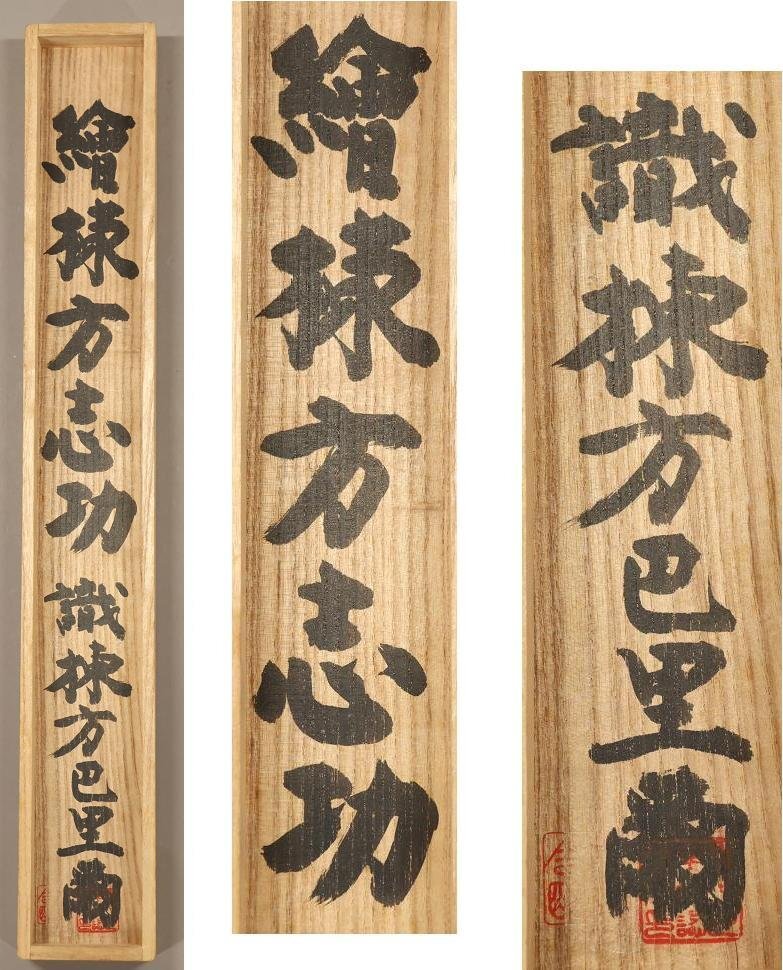 繪棟方志功 識棟方巴里爾
繪棟方志功
識棟方巴里爾